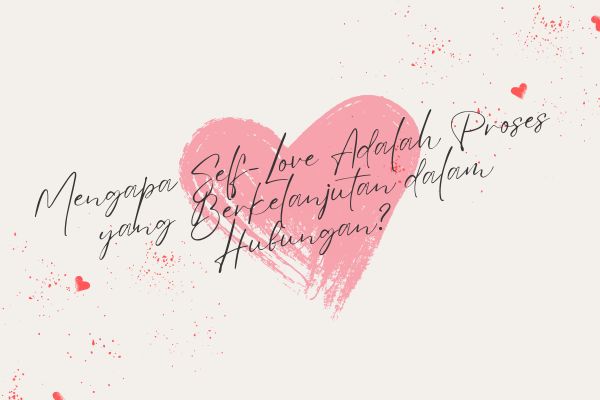 Mengapa Self-Love Adalah Proses
yang Berkelanjutan dalam
Hubungan?